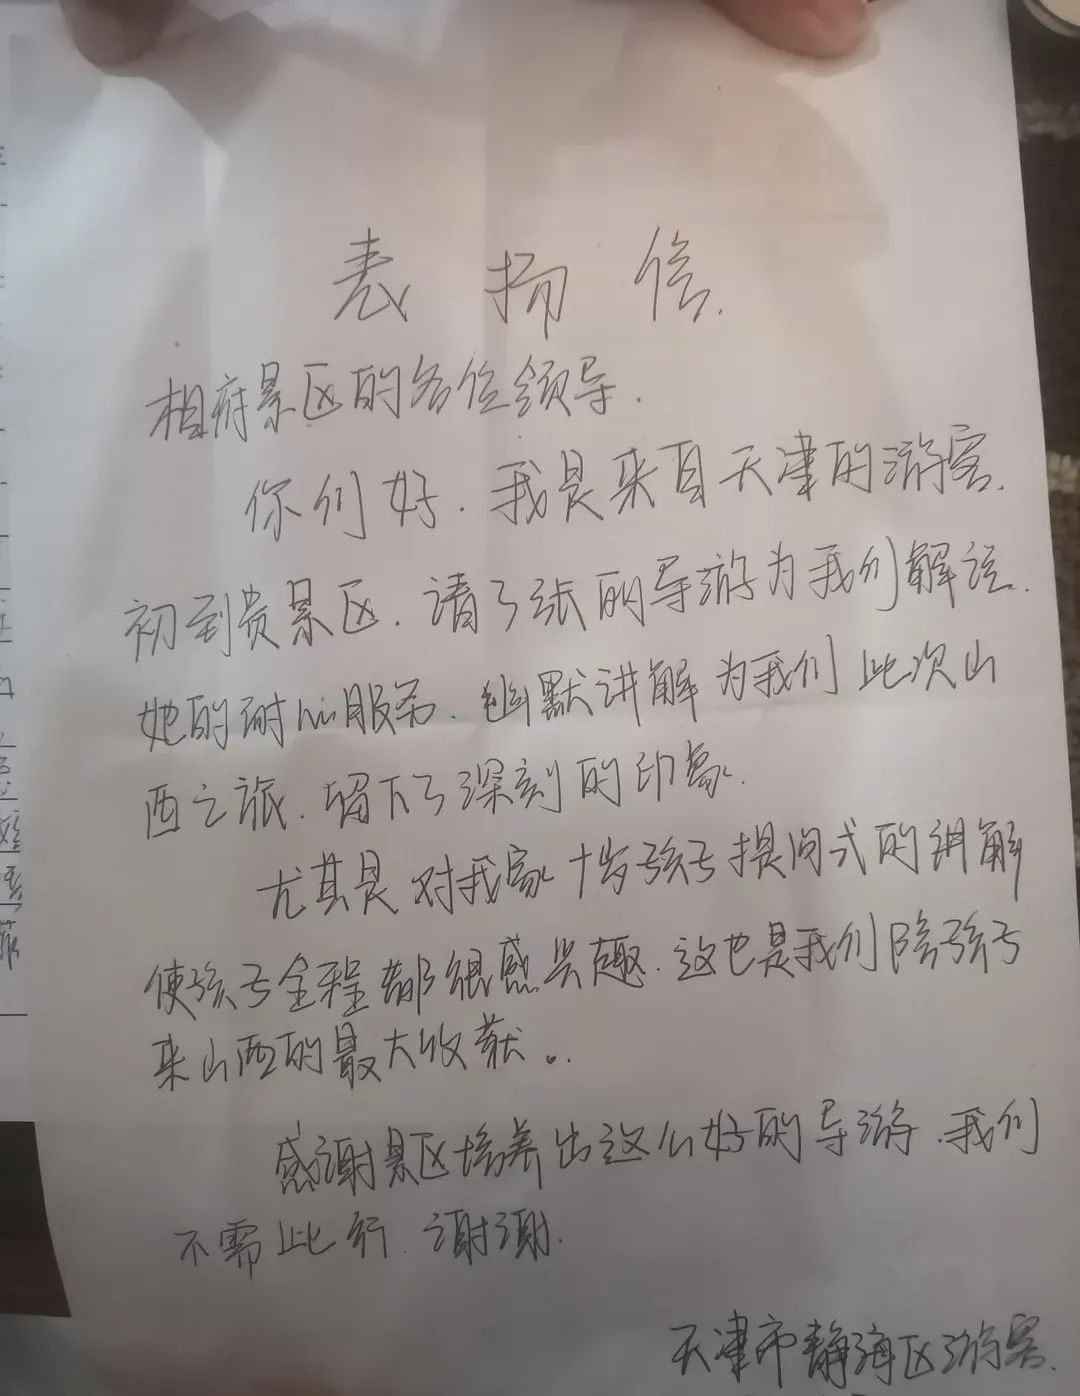 表扬信.
相府景区的各位领导.
你们好.我是来自天津的游客.
初到贵景区.请了张丽导游为我们解说.
她的耐心服务.幽默讲解为我们此次山
西之旅.留下了深刻的印象.
尤其是对我家十岁孩子提问式的讲解
使孩子全程都很感兴趣.这也是我们陪孩子
来山西的最大收获。.
感谢景区培养出这么好的导游.我们
不需此行.谢谢.
天津市静海区游客.